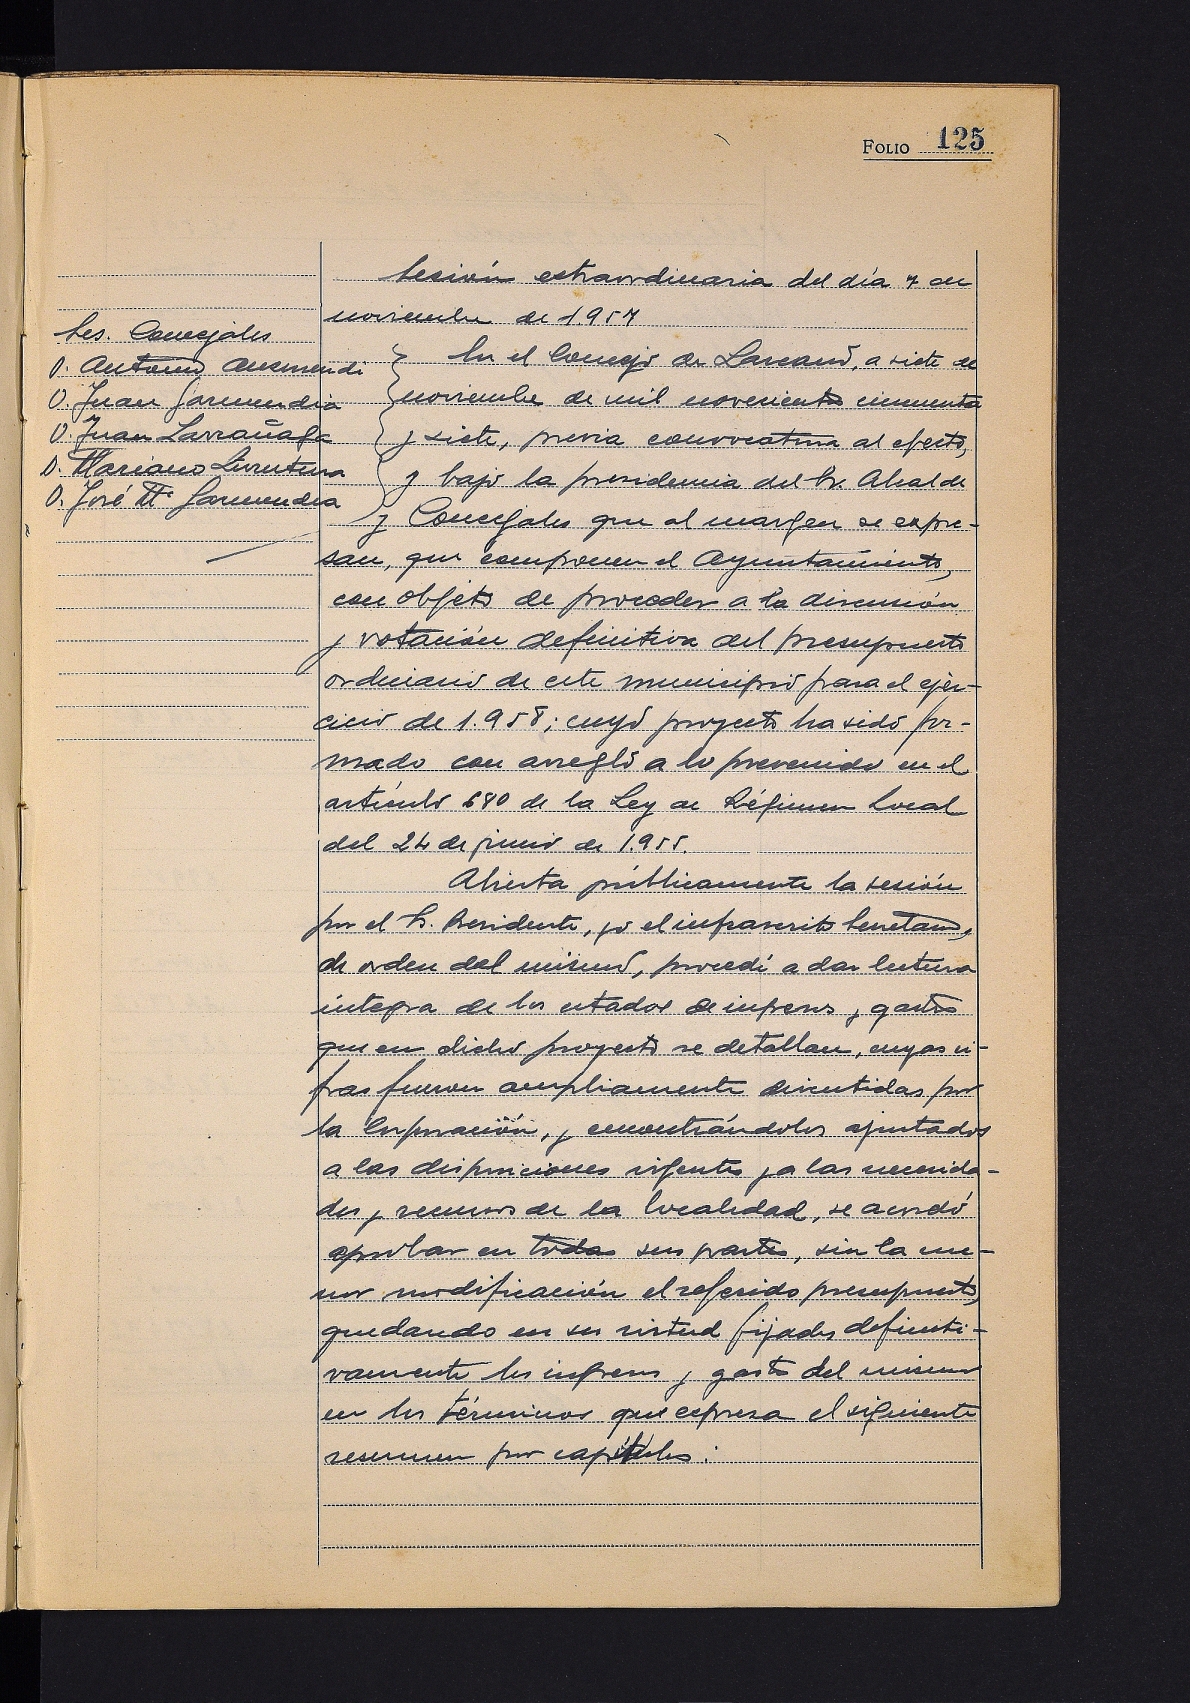 FOLIO 125
Sesión extraordinaria del día 7 de
noviembre de 1.957
Sres. Concejales
D. Antonio Auzmendi
D. Juan Garmendia
D. Juan Larrañaga
D. Mariano
D. José Mª Garmendia
En el Concejo de Lazcano, a siete de
noviembre de mil novecientos cincuenta
y siete, previa convocatoria al efecto,
y bajo la presidencia del Sr. Alcalde
y Concejales que al margen se expre-
san, que componen el Ayuntamiento,
con objeto de proceder a la discusión
y votación definitiva del presupuesto
ordinario de este municipio para el ejer-
cicio de 1.958; cuyo proyecto ha sido for-
mado con arreglo a lo prevenido en el
artículo 680 de la Ley de Régimen Local
del 24 de junio de 1.955.
Abierta públicamente la sesión
por el Sr. Presidente, yo el infrascrito Secretario,
de orden del mismo, procedí a dar lectura
íntegra de los estados de ingresos y gastos
que en dicho proyecto se detallan, cuyas ci-
fras fueron ampliamente discutidas por
la Corporación, y encontrándolos ajustados
a las disposiciones vigentes y a las necesida-
des y recursos de la localidad, se acordó
aprobar en todas sus partes, sin la me-
nor modificación el referido presupuesto,
quedando en su virtud fijados definiti-
vamente los ingresos y gastos del mismo
en los términos que expresa el siguiente
resumen por capítulos: